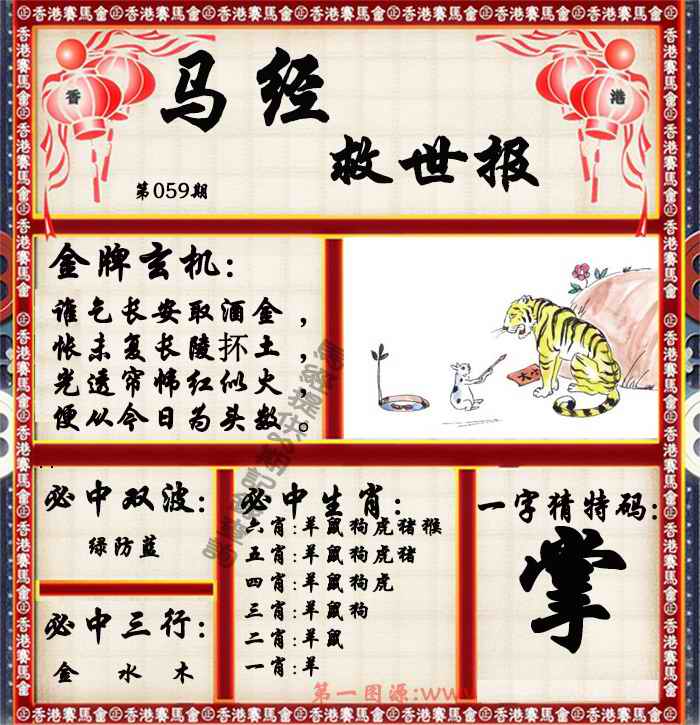 香港賽馬會
香 港
马经
救世报
第059期
金牌玄机:
谁乞长安取酒金，
怅未复长陵抔土，
光透帘帏红似火，
便从今日为头数。
必中双波:
绿防蓝
必中三行:
金 水 木
必中生肖:
六肖:羊鼠狗虎猪猴
五肖:羊鼠狗虎猪
四肖:羊鼠狗虎
三肖:羊鼠狗
二肖:羊鼠
一肖:羊
一字猜特码:
掌
第一图源:ww